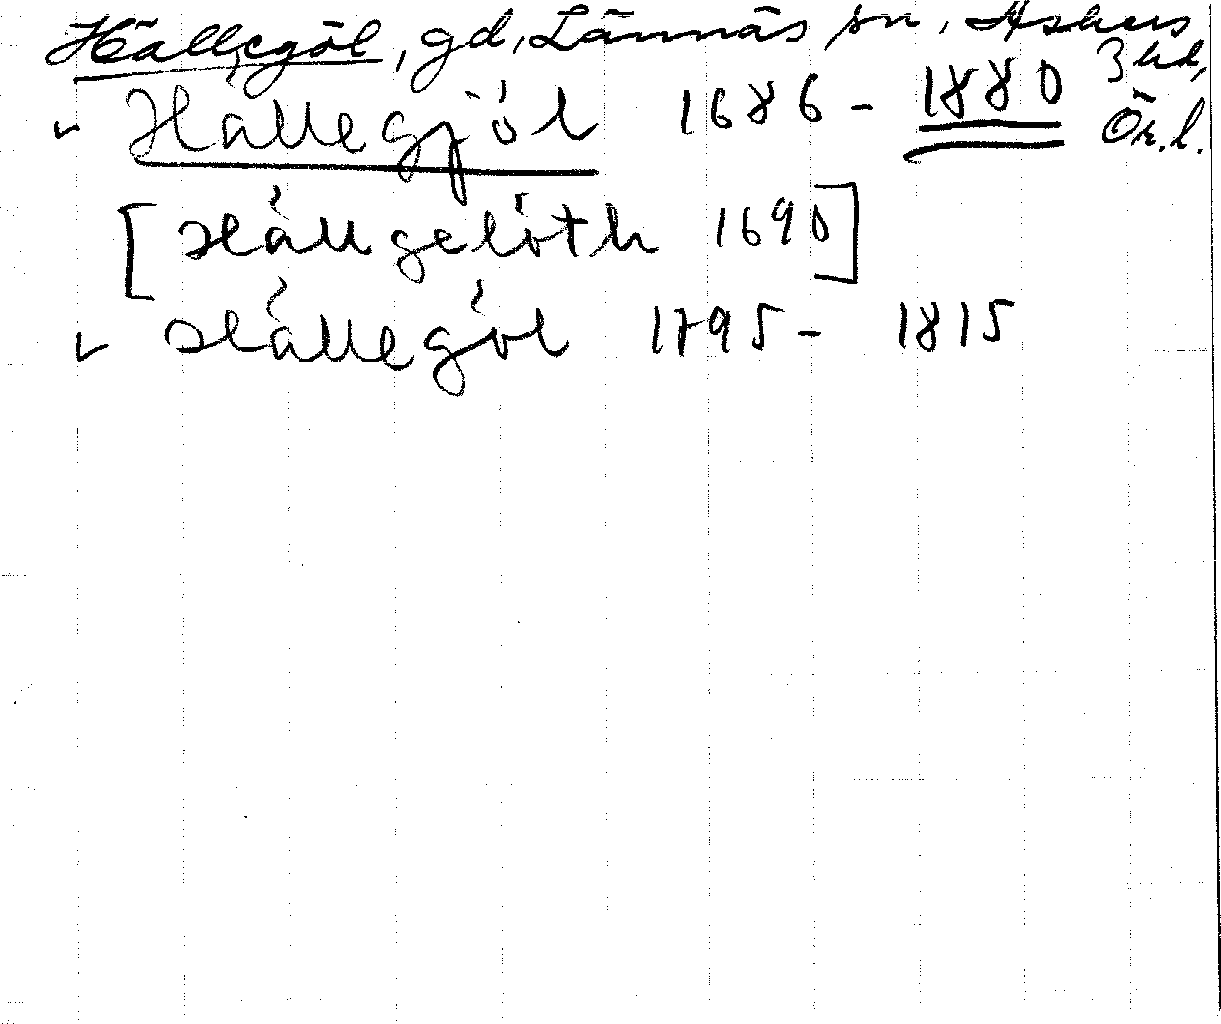 Hällegöl, gd, Lännäs sn, Askers
hd,
Ör. l.
Hällegjöl 1686 - 1880
[Hällgelöth 1690]
Hällegöl 1795 - 1815